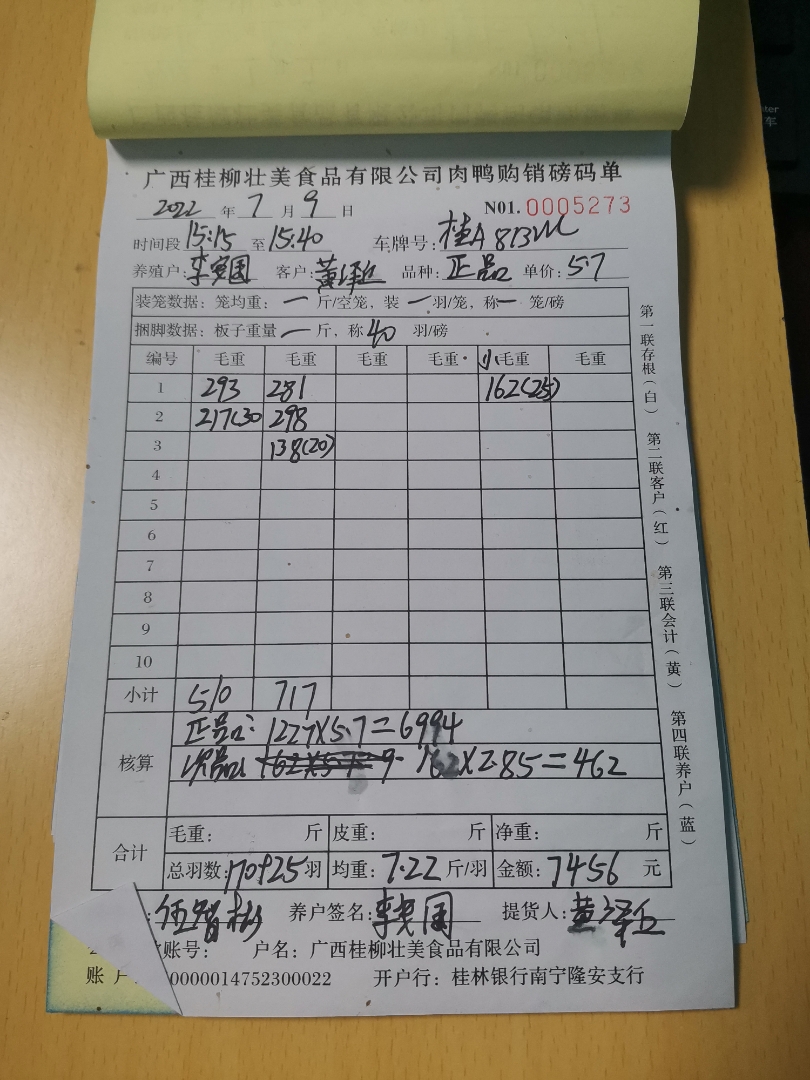 广西桂柳壮美食品有限公司肉鸭购销磅码单
2022 年 7 月 9 日 N01. 0005273
时间段 15:15 至 15:40 车牌号: 桂A 813M
养殖户: 李安国 客户: 黄泽丘 品种: 正品 单价: 5.7
装笼数据: 笼均重: 一 斤/空笼, 装 一 羽/笼, 称 一 笼/磅
捆脚数据: 板子重量 一 斤, 称 40 羽/磅
编号 毛重 毛重 毛重 毛重 小毛重 毛重
1 293 281 162(25)
2 217(30 298
3 138(20)
4
5
6
7
8
9
10
小计 510 717
核算 正品: 1227X5.7=6994
次品: 162X2.85=462
合计 毛重: 斤 皮重: 斤 净重: 斤
总羽数: 170+25 羽 均重: 7.22 斤/羽 金额: 7456 元
养户签名: 提货人:
账号: 户名: 广西桂柳壮美食品有限公司
账 户 0000014752300022 开户行: 桂林银行南宁隆安支行
第一联存根(白) 第二联客户(红) 第三联会计(黄) 第四联养户(蓝)